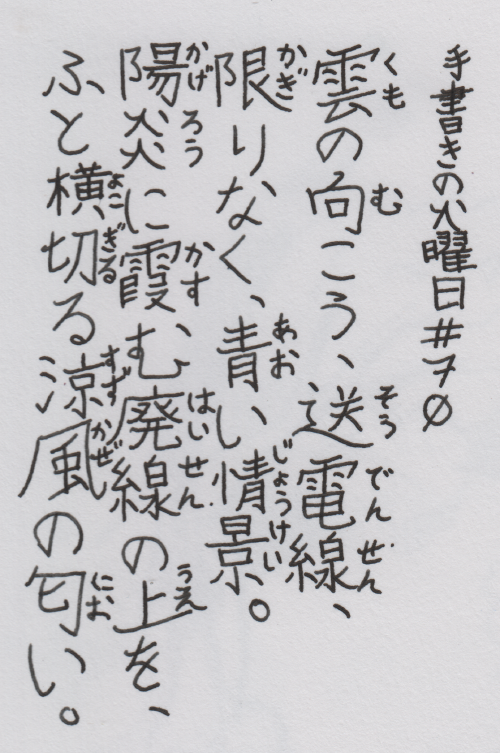 手書きの火曜日#70
雲の向こう、送電線、
くも む そうでんせん
限りなく、青い情景。
かぎ あお じょうけい
陽炎に霞む廃線の上を、
かげろう かす はいせん うえ
ふと横切る涼風の匂い。
よこぎる すずかぜ にお